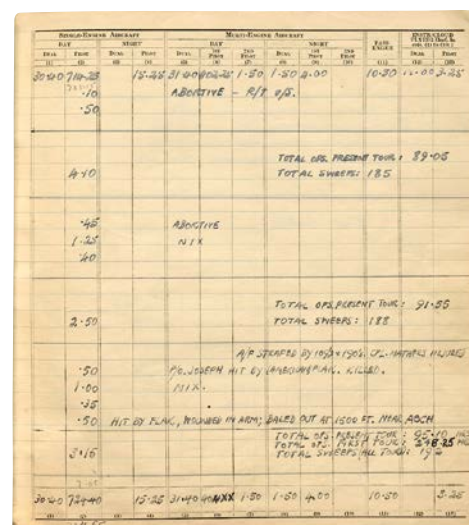 SINGLE-ENGINE AIRCRAFT MULTI-ENGINE AIRCRAFT
DAY NIGHT DAY NIGHT PASS ENGER
DUAL PILOT DUAL PILOT DUAL 1ST PILOT 2ND PILOT DUAL 1ST PILOT 2ND PILOT DUAL PILOT
(1) (2) (3) (4) (5) (6) (7) (8) (9) (10) (11) (12) (13)
30·40 15·25 31·40 402·25 1·50 1·50 4.00 10·50 3·25
·10 ABORTIVE - R/T U/S.
·50
TOTAL OPS. PRESENT TOUR: 89·05
4·10 TOTAL SWEEPS: 185
·45 ABORTIVE
1·25 NIX
·40
TOTAL OPS. PRESENT TOUR: 91·55
2·50 TOTAL SWEEPS: 188
A/F STRAFED BY 109's + 190's. CPL. INJURED
·50 F/O. JOSEPH HIT BY FLAK. KILLED.
1·00 NIX.
·35
·50 HIT BY FLAK, WOUNDED IN ARM; BALED OUT AT 1500 FT. NEAR ASCH
TOTAL OPS. PRESENT TOUR: 95·10 HRS
TOTAL OPS. FIRST TOUR:
3·15 TOTAL SWEEPS (ALL TOURS):
30·40 724·40 15·25 31·40 1·50 1·50 4·00 10·50 3·25